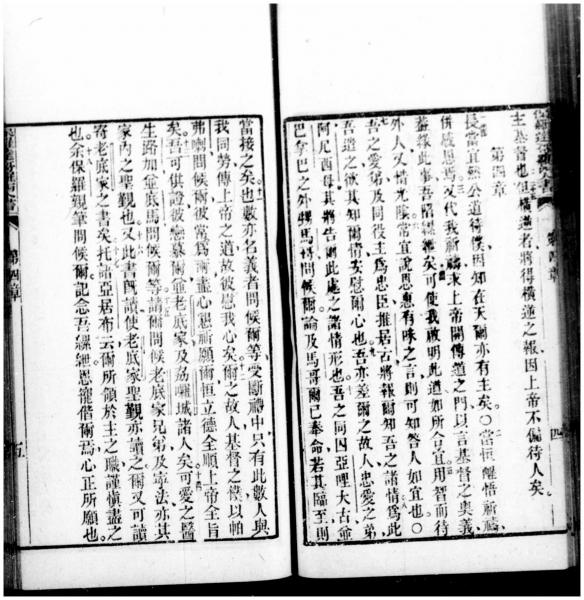 主基督也但橫逆者將得橫逆之報因上帝不偏待人矣。
第四章
長當宜公道待僕因知在天爾亦有主矣〇當恒醒悟祈禱
併感恩焉又代我祈禱求上帝開傳道之門以言基督之奧義
蓋緣此事吾陷縲絏矣可使我啟明此道如所合宜用智而待
外人又惜光陰常宜說恩惠有味之言則可知答人如宜也〇
吾之愛弟及同役主爲忠臣推居古將報爾知吾之諸情爲此
吾遣之欲其知爾情安慰爾心也吾亦差爾之故人忠愛之弟
阿尼西母其將告爾此處之諸情形也吾之同囚亞哩大古爺
巴拿巴之外甥馬哥問候爾論及馬哥爾已奉命若其臨至則
四
當接之矣也數亦名義者問候爾等受斷禮中只有此數人與
我同勞傳上帝之道故彼慰我心矣爾之故人基督之僕以帕
弗喇問候爾彼常爲爾盡心懇祈願爾恒立德全順上帝全旨
矣吾可供證彼戀慕爾並老底家及城諸人矣可愛之醫
生路加並底馬問候爾等請爾問候老底家兄弟及寧法亦其
家內之聖覡也又此書旣讀使老底家聖覡亦讀之爾又可讀
寄老底家之書矣托語亞居布云爾所領於主之職謹慎盡之
也余保羅親筆問候爾記念吾縲絏恩寵偕爾焉心正所願也
第四章
五